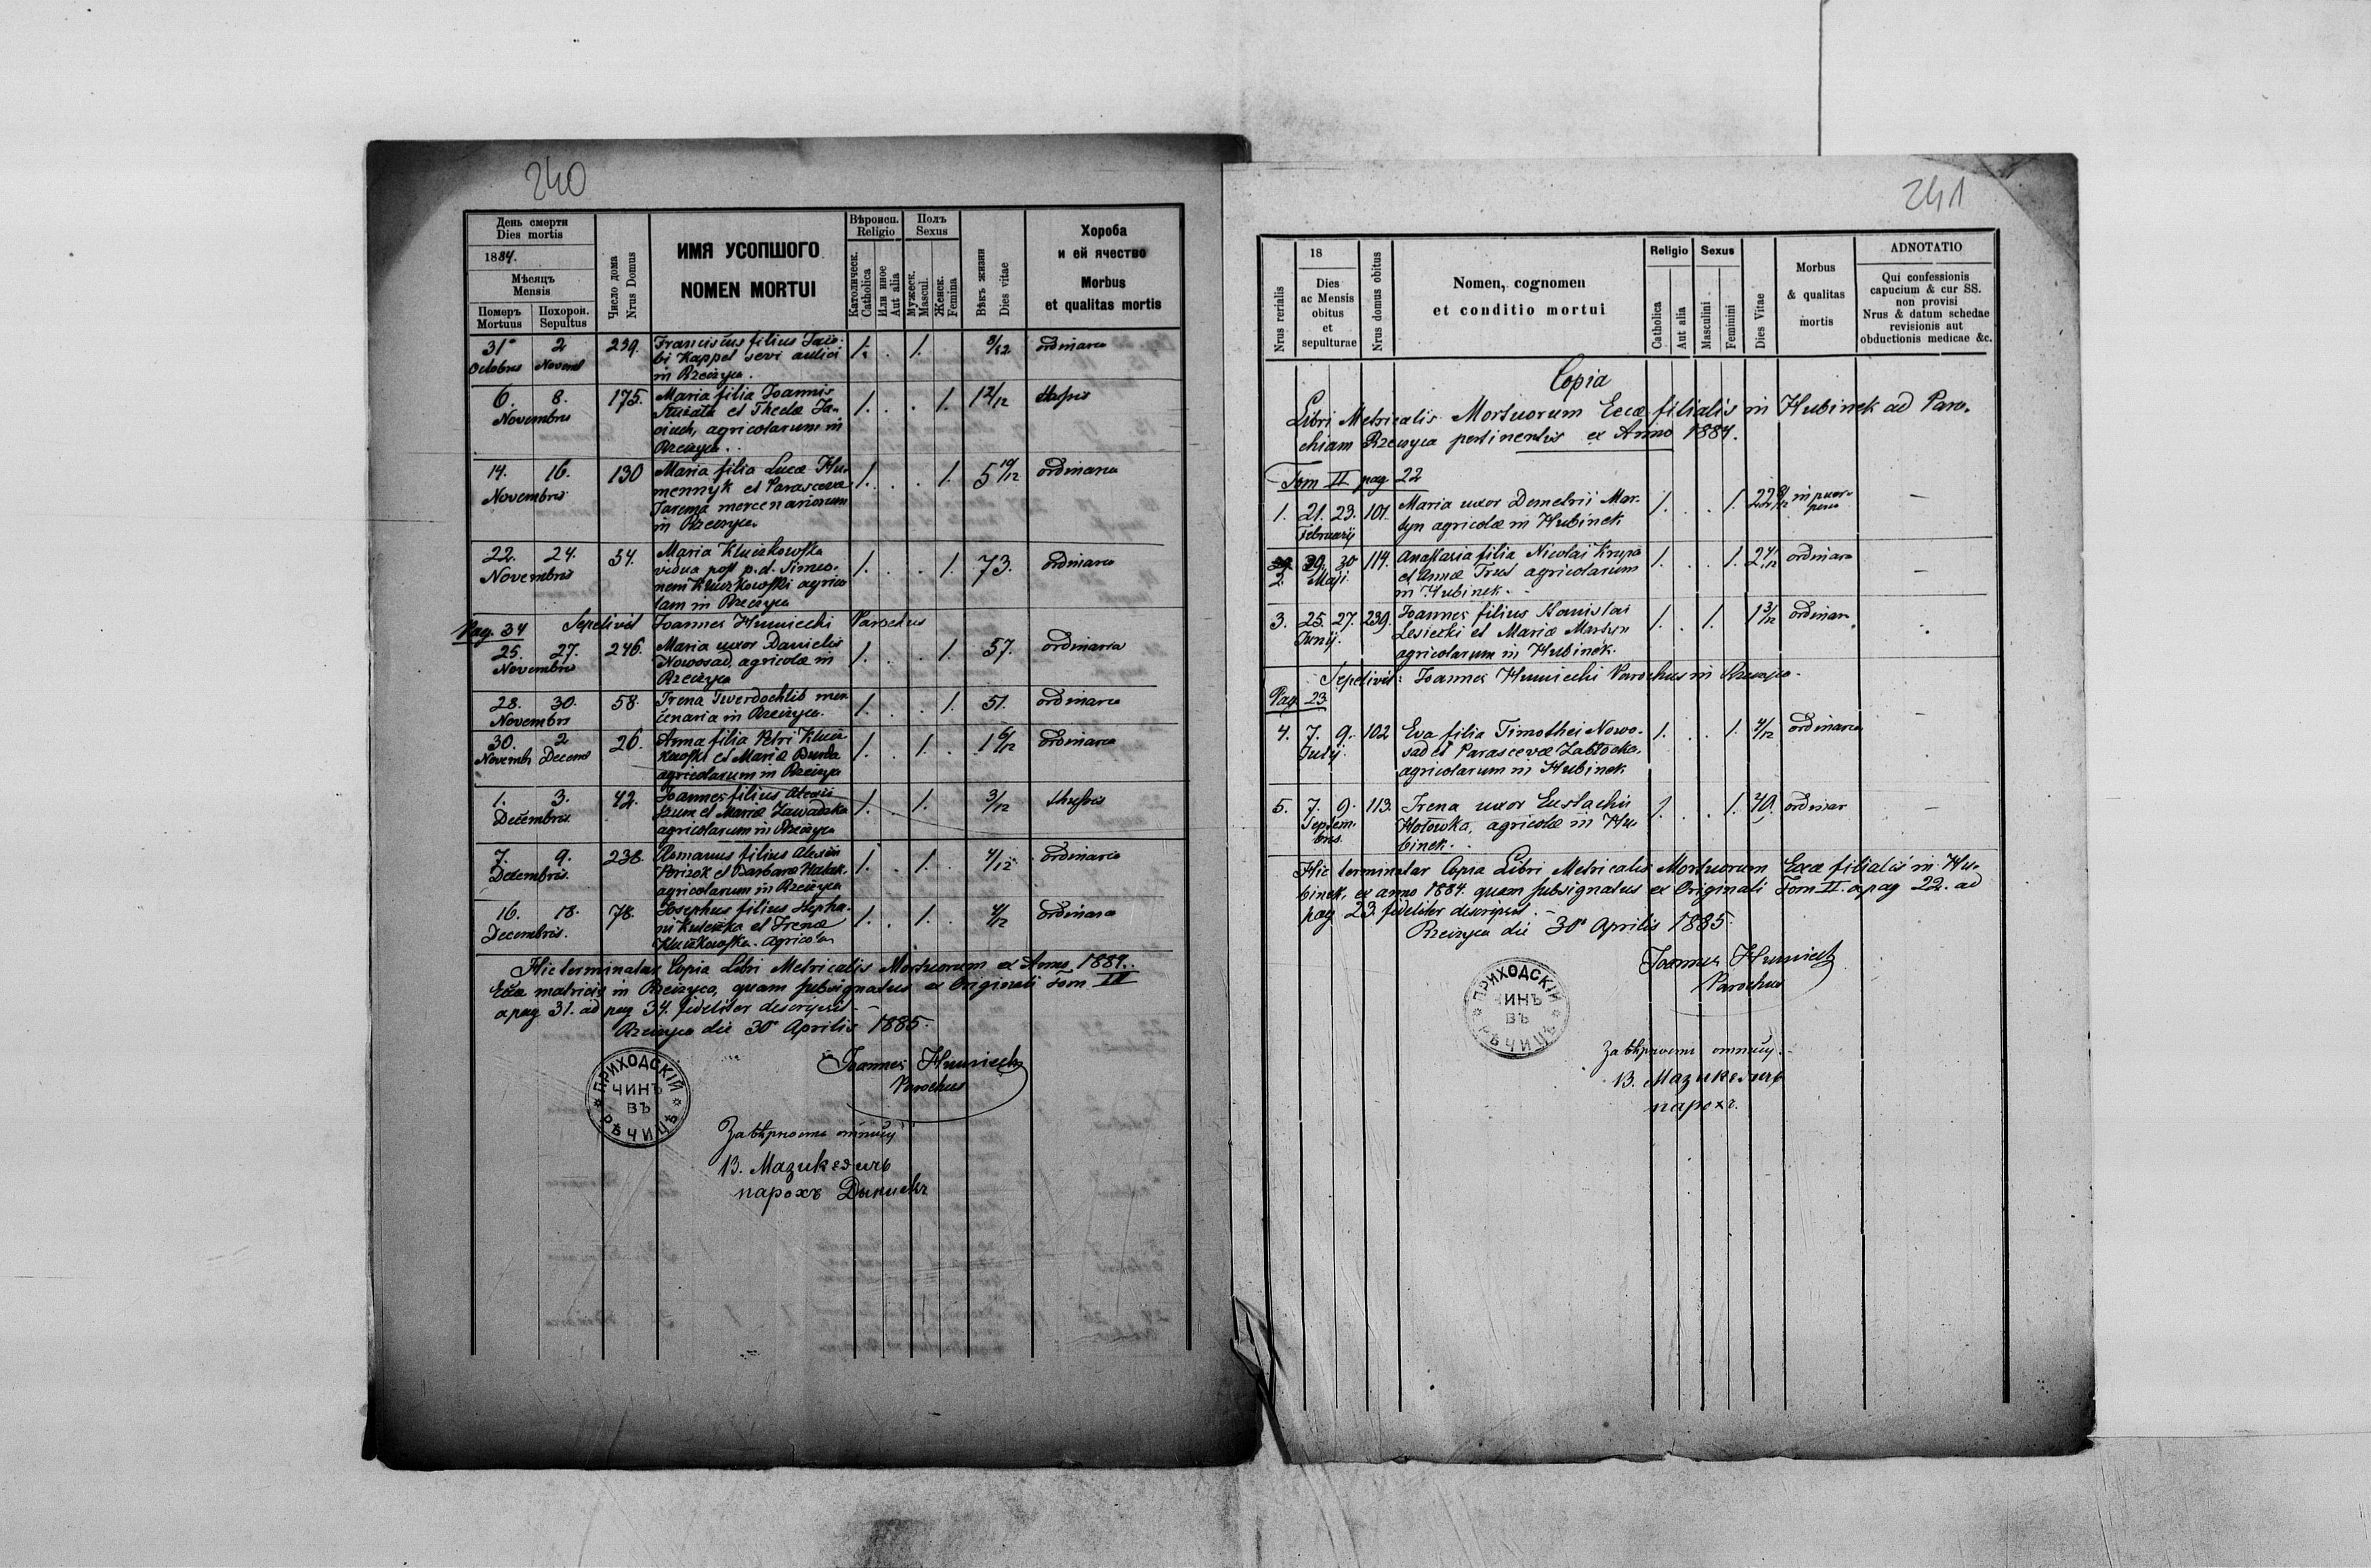 240
День смерти
Dies mortis
1884.
Мѣсяцъ
Mensis
Померъ
Mortuus
Похорон.
Sepultus
Число дома
Nrus Domus
ИМЯ УСОПШОГО
NOMEN MORTUI
Вѣроисп.
Religio
Католическ.
Catholica
Или иное
Aut alia
Полъ
Sexus
Мужеск.
Mascul.
Женск.
Femina
Вѣкъ жизни
Dies vitae
Хороба
и ей ячество
Morbus
et qualitas mortis
31 2 239. Franciscus filius Jaco- 1. 1. ordinaria
Octobris Novemb bi Kappel servi aulici
in Rzeczyca.
6. 8. 175. Maria filia Joannis 1. 1. 12/12
Novembris et Theclae
agricolarum in
Rzeczyca.
14. 16. 130 Maria filia Lucae Hu- 1. 1. 5 10/12 ordinaria
Novembris mennyk et Parasceva
Jarema mercenariorum
in Rzeczyca
22. 24. 54. Maria Kluczkowska 1. 1. 73. ordinaria
Novembris vidua post p.d. Simeo-
nem Kluczkowski agrico
lam in Rzeczyca
Pag. 34 Sepelivit Joannes Humiecki Parochus
25. 27. 246. Maria uxor Danielis 1. 1. 57. ordinaria
Novembris Nowosad, agricolae in
Rzeczyca
28. 30. 58. Irena Twerdochlib mer 1. 1. 51. ordinaria
Novembri cenaria in Rzeczyca.
30. 2 26. Anna filia Petri Klucz 1. 1. 1 6/12 ordinaria
Novemb Decemb kowski et Maria Burda
agricolarum in Rzeczyca
1. 3. 42. Joannes filius 1. 1. 3/12
Decembris. et Mariae Zawadzka
agricolarum in Rzeczyca
7. 9. 238. Romanus filius Alexii 1. 1. 4/12 ordinaria
Decembris. et Barbara
agricolarum in Rzeczyca
16. 18. 78. Josephus filius Stepha- 1. 1. 4/12 ordinaria
Decembris. ni et Irenae
Kluczkowska. Agricola
Hic terminatur Copia Libri Metricalis Mortuorum ex Anno 1884.
Eccae matricis in Rzeczyca, quam subsignatus ex Originali Tom II
a pag 31. ad pag 34. fideliter descripsit
Rzeczyca die 30 Aprilis 1885.
Joannes Humiecki
Parochus
ПРИХОДСКІЙ
ЧИНЪ
ВЪ
РѢЧИЦѢ
За вѣрность
В. Мазикевичъ
парохъ
241
Nrus rerialis
18
Dies
ac Mensis
obitus
et
sepulturae
Nrus domus obitus
Nomen, cognomen
et conditio mortui
Religio
Catholica
Aut alia
Sexus
Masculini
Feminini
Dies Vitae
Morbus
& qualitas
mortis
ADNOTATIO
Qui confessionis
capucium & cur SS.
non provisi
Nrus & datum schedae
revisionis aut
obductionis medicae &c.
Copia
Libri Metricalis Mortuorum Eccae filialis in Hubinek ad Paro-
chiam Rzeczyca pertinentis ex Anno 1884.
Tom II pag 22
1. 21. 23. 101. Maria uxor Demetrii Mar- 1. 1. 22 in puer- –
Februarij tyn agricolae in Hubinek perio
2. 29. 30 114. Anastasia filia Nicolai Krupa 1. 1. 2 4/12 ordinaria –
Maji. et Annae Trus agricolarum
in Hubinek.
3. 25. 27. 239. Joannes filius Stanislai 1. 1. 1 3/12 ordinar.
Junij. Lesiecki et Mariae Martyn
agricolarum in Hubinek.
Sepelivit: Joannes Humiecki Parochus in Rzeczyca.
Pag. 23
4. 7. 9. 102 Eva filia Timothei Nowo- 1. 1. 4/12 ordinaria
Julij. sad et Parascevae Zabłocka,
agricolarum in Hubinek
5. 7. 9. 113. Irena uxor Eustachii 1. 1. 40. ordinar –
Septem- Hołowka, agricolae in Hu-
bris. binek.
Hic terminatur Copia Libri Metricalis Mortuorum Eccae filialis in Hu-
binek, ex anno 1884. quam subsignatus ex Originali Tom II. a pag 22. ad
pag 23. fideliter descripsit.
Rzeczyca die 30 Aprilis 1885.
Joannes Humiecki
Parochus
ПРИХОДСКІЙ
ЧИНЪ
ВЪ
РѢЧИЦѢ
За вѣрность
В. Мазикевичъ
парохъ.